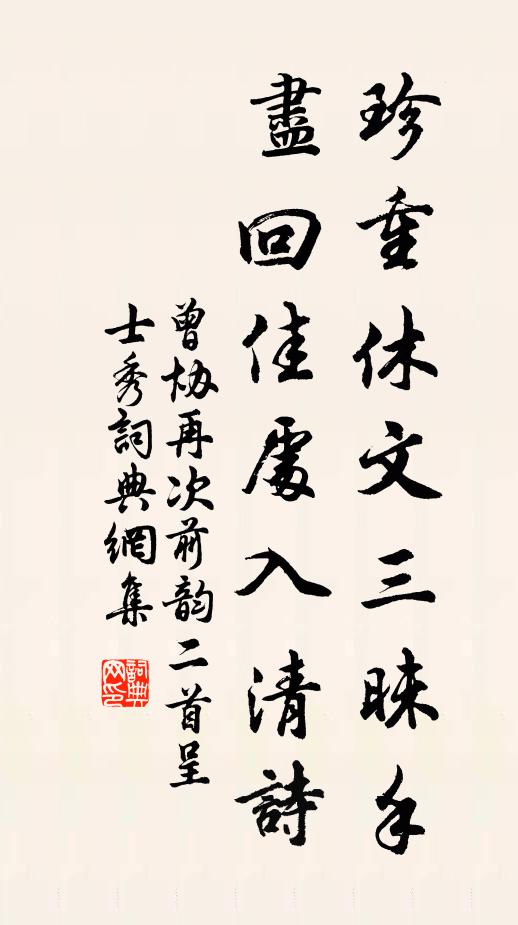 珍重休文三昧手
盡回佳處入清詩
曾協再次前韵二首呈
士秀詞典網集
詞典
网印